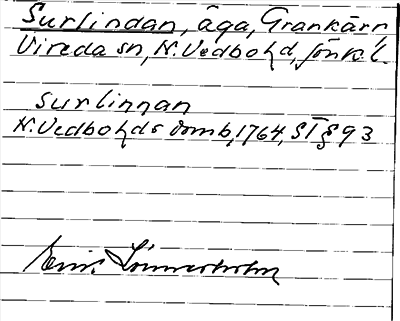 Surlindan, äga, Grankärr,
Vireda sn, N. Vedbo hd, Jönk. l.
surlinnan
N. Vedbo hds domb, 1764, ST § 93
Linnerholm